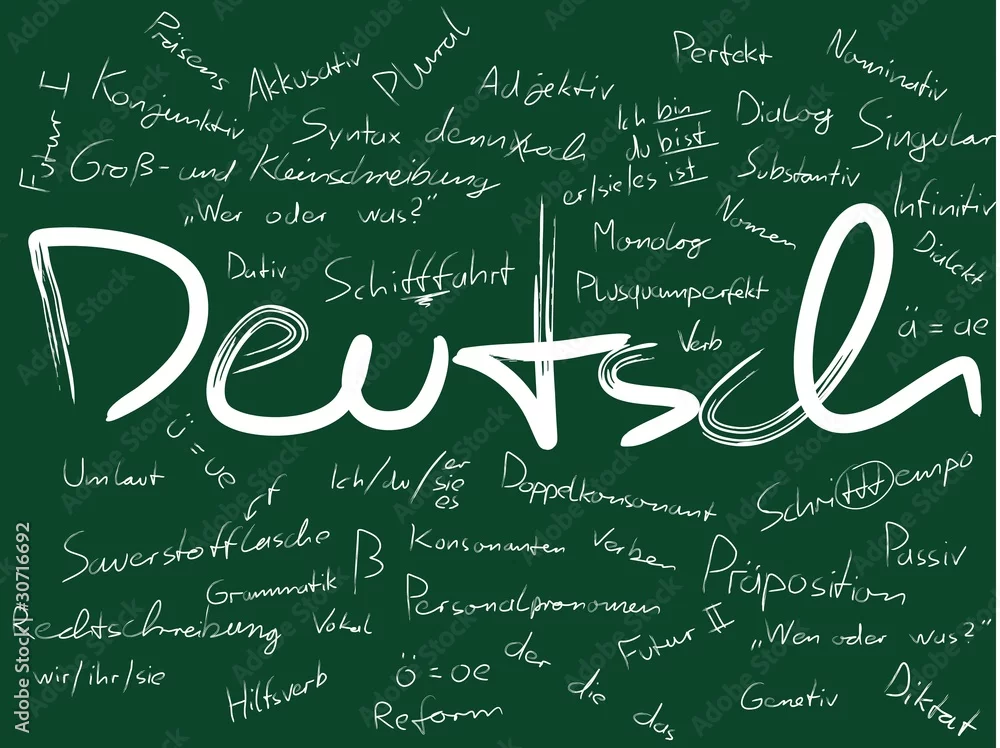 Präsens
Akkusativ
Plural
Perfekt
Nominativ
Futur I
Konjunktiv
Adjektiv
Ich bin
du bist
er/sie/es ist
Dialog
Singular
Syntax
dennoch
Groß- und Kleinschreibung
Substantiv
Infinitiv
„Wer oder was?“
Nomen
Monolog
Dialekt
Dativ
Schifffahrt
Plusquamperfekt
ä = ae
Verb
Deutsch
ü = ue
Umlaut
Ich/du/er
sie
es
Doppelkonsonant
Schritttempo
f
Sauerstofflasche
ß
Konsonanten
Verben
Präposition
Passiv
Grammatik
Personalpronomen
Rechtschreibung
Vokal
Futur II
„Wen oder was?“
wir/ihr/sie
Hilfsverb
ö = oe
der
die
das
Reform
Genetiv
Diktat
Adobe Stock | #30716692